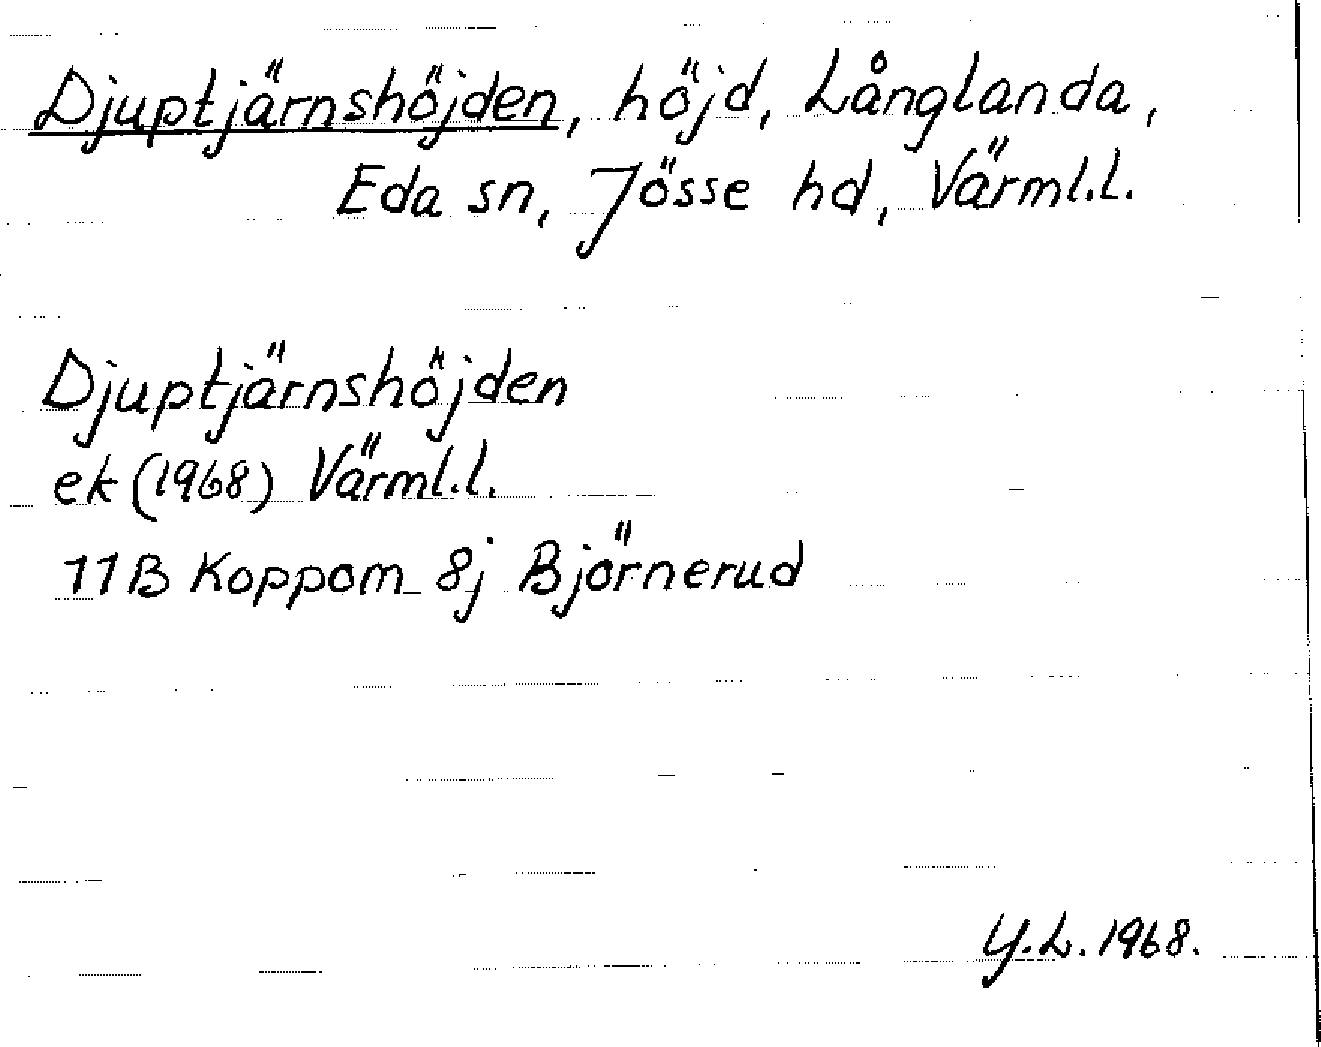 Djuptjärnshöjden, höjd, Långlanda,
Eda sn, Jösse hd, Värml.l.
Djuptjärnshöjden
ek (1968) Värml.l.
11B Koppom 8j Björnerud
Y.L. 1968.